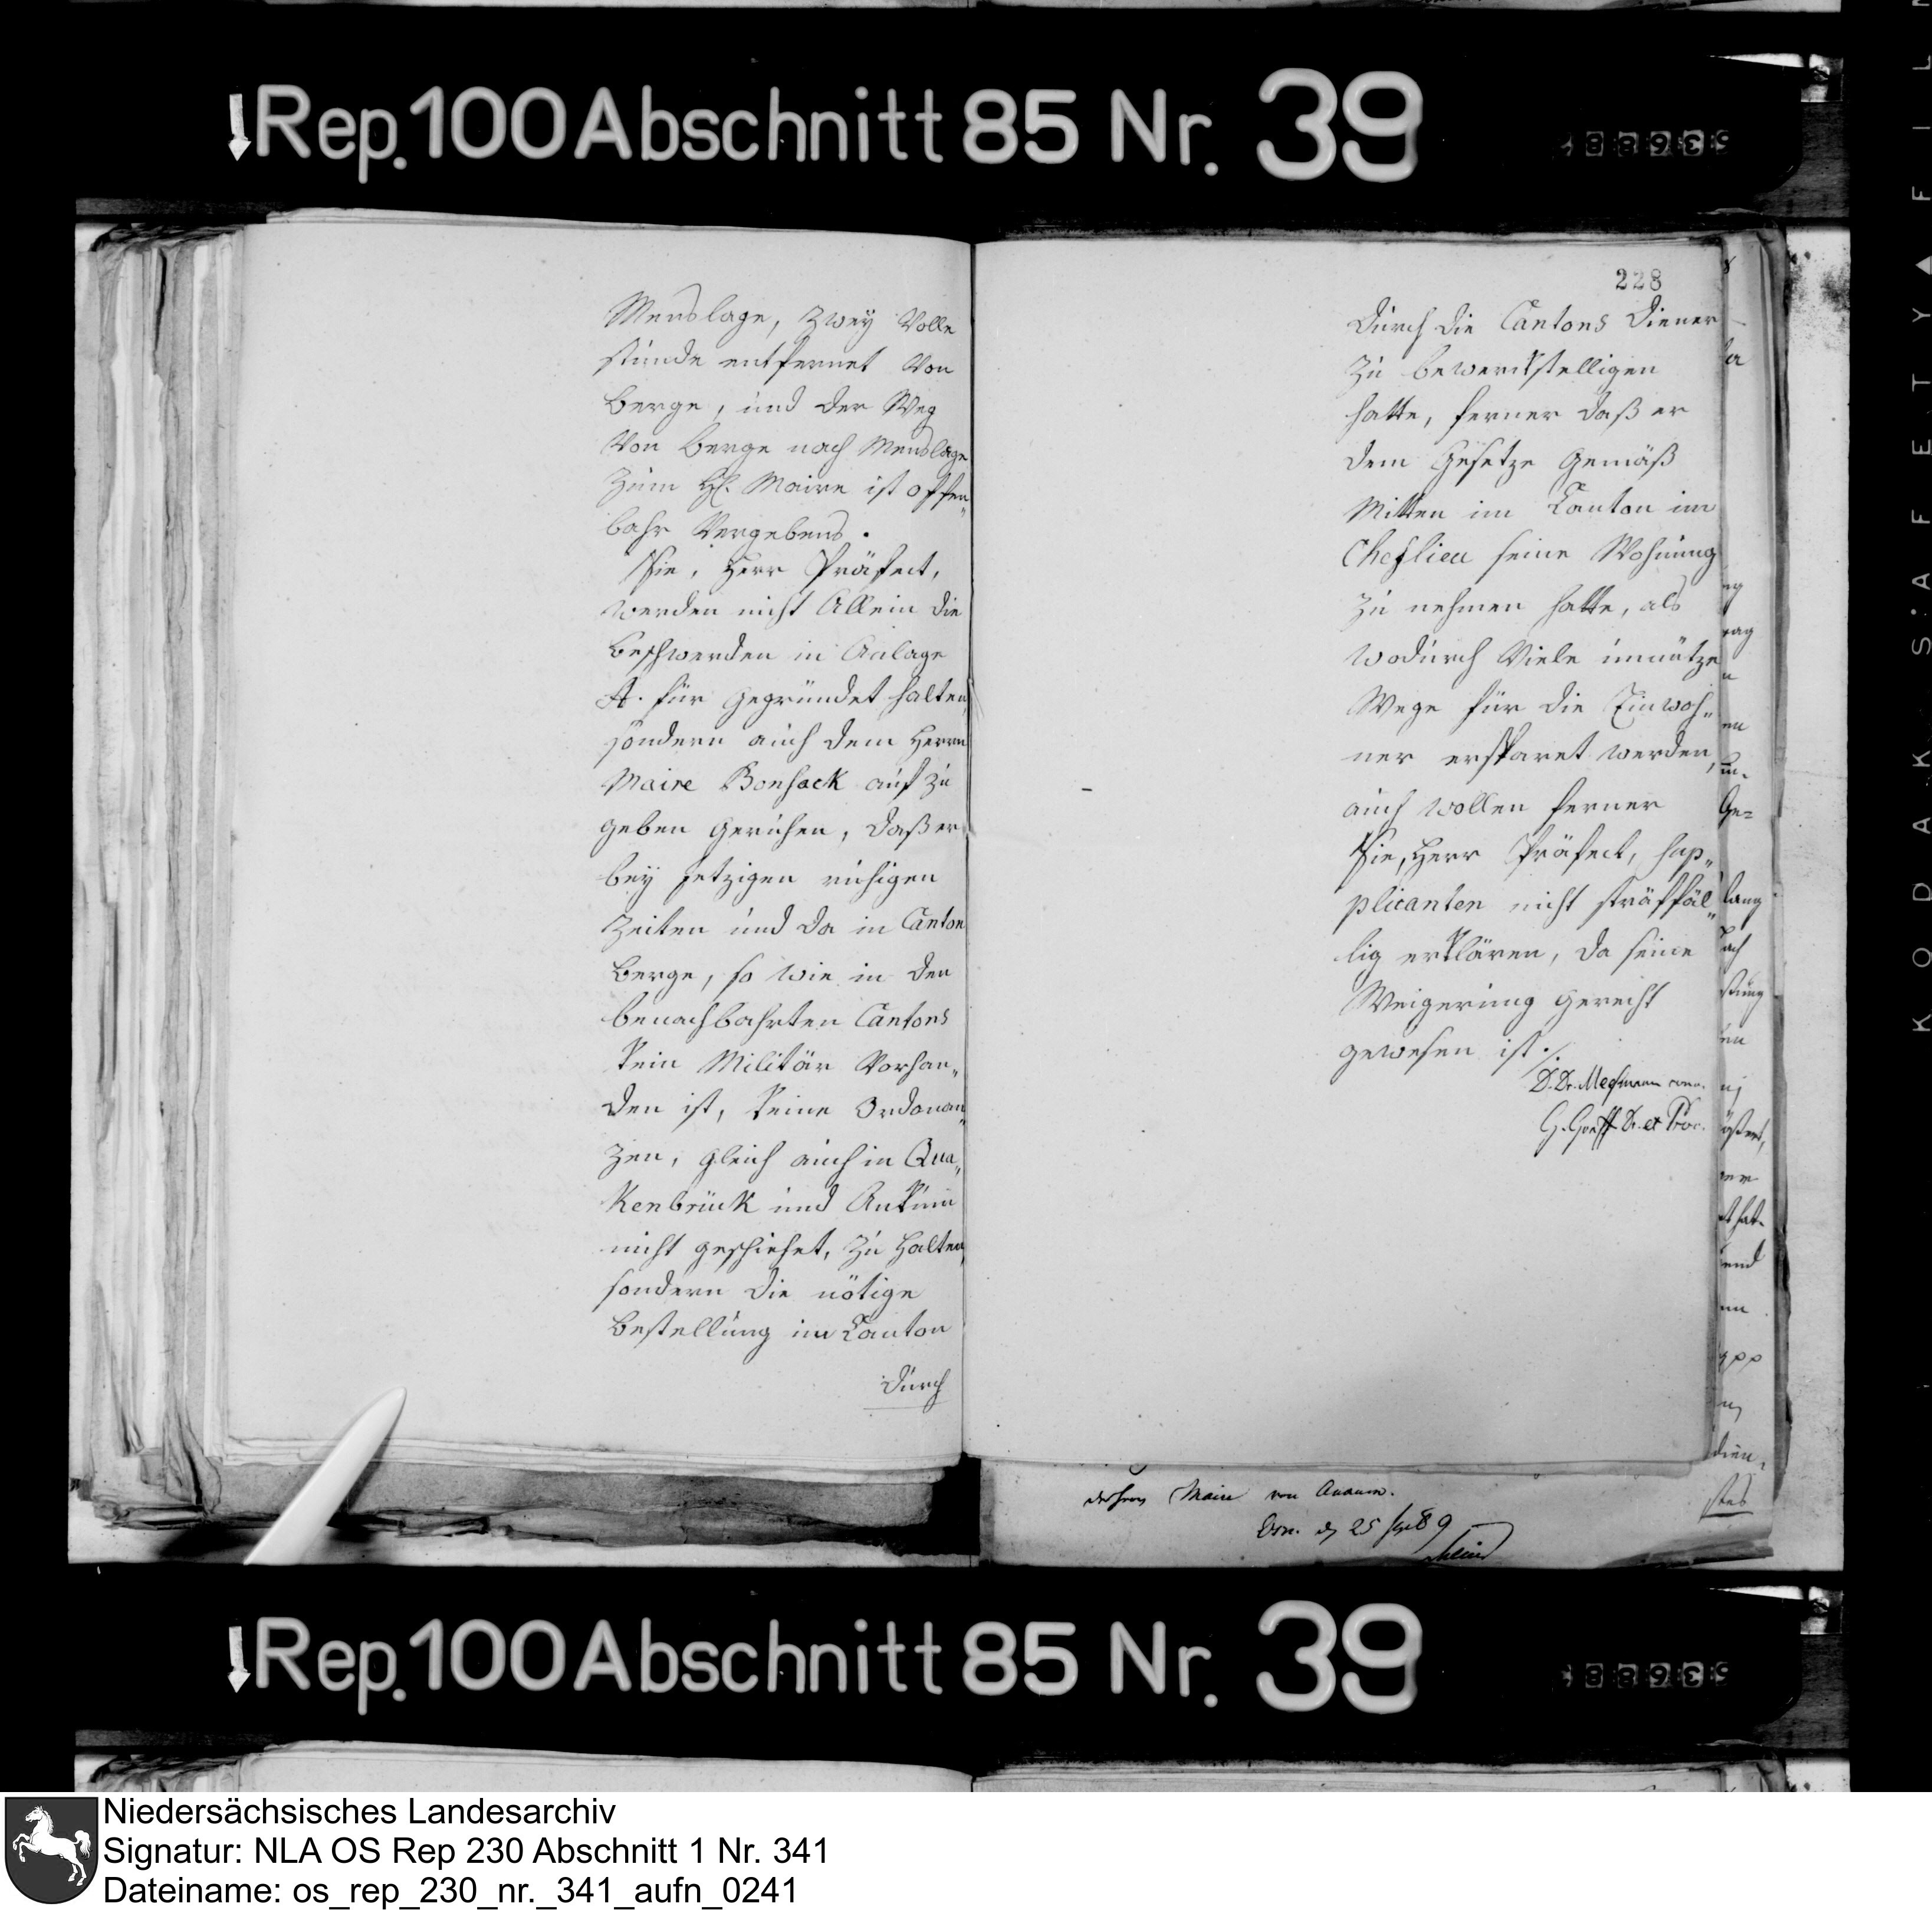 Rep. 100 Abschnitt 85 Nr. 39
Menslage, zwey volle
stunde entfernet von
Berge, und der Weg
von Berge nach Menslage
zum H. Maire ist offen„
bahr Vergebens.
Sie, Herr Präfect,
werden nicht Allein die
Beschwerden in Anlage
A. für gegründet halten,
sondern auch dem Herrn
Maire Bonsack auf zu
geben geruhen, daß er
bey jetzigen ruhigen
Zeiten und da in Canton
Berge, so wie in den
benachbahrten Cantons
kein Militär Vorhan„
den ist, keine Ordonan„
zen, gleich auch in Qua„
kenbrück und Ankum
nicht geschiehet, zu halten,
sondern die nötige
Bestellung im Canton
durch
228
durch die Cantons Diener
zu bewerckstelligen
hatte, ferner daß er
dem Gesetze gemäß
Mitten im Canton im
Cheflieu seine Wohnung
zu nehmen hatte, als
wodurch Viele unnütze
Wege für die Einwoh„
ner ersparet werden,
auch wollen ferner
Sie, Herr Präfect, sup„
plicanten nicht sträffäl„
lig erklären, da seine
Weigerung gerecht
gewesen ist.
G. Graff Dr. et Proc.
Maire von
25 9
lang
stes
KODAK S'AFETY FILM
Rep. 100 Abschnitt 85 Nr. 39
Niedersächsisches Landesarchiv
Signatur: NLA OS Rep 230 Abschnitt 1 Nr. 341
Dateiname: os_rep_230_nr._341_aufn_0241